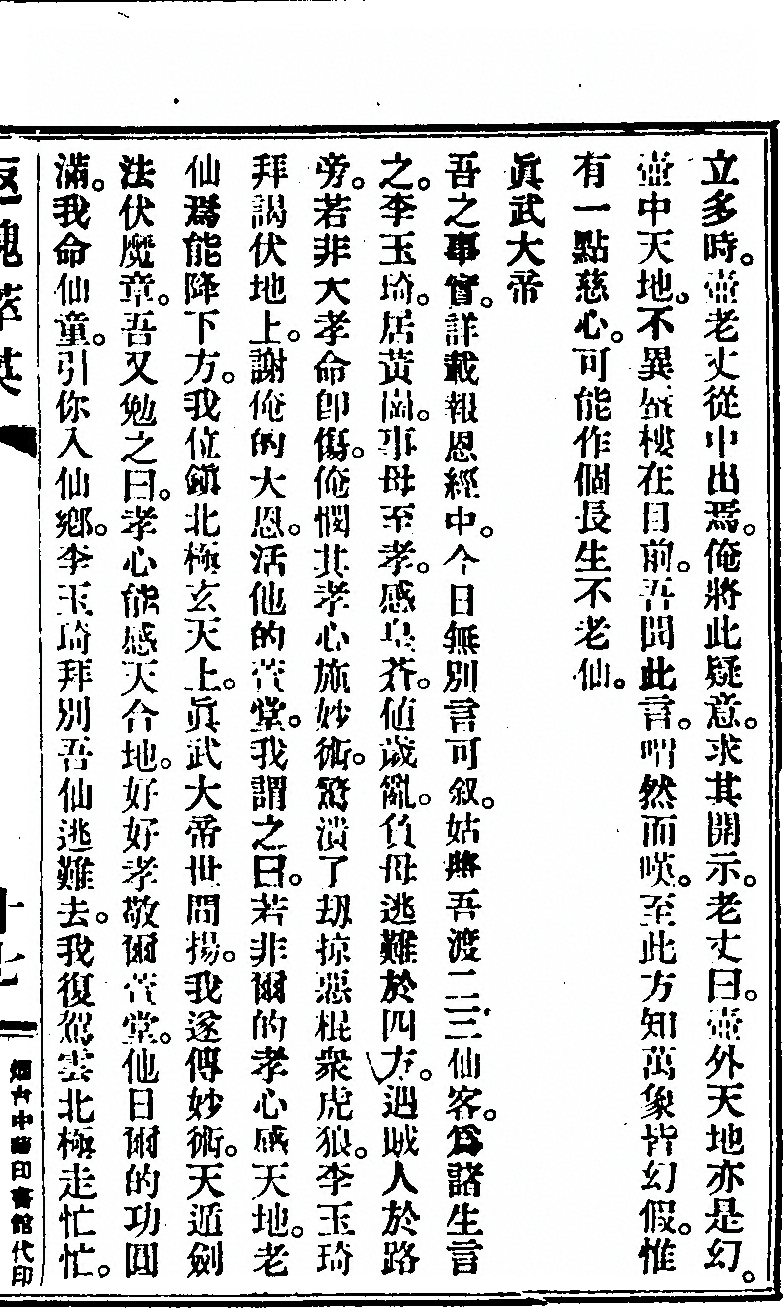 立多時。壺老丈從中出焉。俺將此疑意。求其開示。老丈曰。壺外天地亦是幻。
壺中天地。不異蜃樓在目前。吾聞此言。喟然而嘆。至此方知萬象皆幻假。惟
有一點慈心。可能作個長生不老仙。
眞武大帝
吾之事實。詳載報恩經中。今日無別言可叙。姑將吾渡二三仙客。爲諸生言
之。李玉琦。居黃崗。事母至孝。感皇蒼。値歲亂。負母逃難於四方。遇賊人於路
旁。若非大孝命卽傷。俺憫其孝心施妙術。驚潰了刼掠惡棍衆虎狼。李玉琦
拜謁伏地上。謝俺的大恩。活他的萱堂。我謂之曰。若非爾的孝心感天地。老
仙焉能降下方。我位鎭北極玄天上。眞武大帝世間揚。我遂傳妙術。天遁劍
法伏魔章。吾又勉之曰。孝心能感天合地。好好孝敬爾萱堂。他日爾的功圓
滿。我命仙童。引你入仙鄉。李玉琦拜別吾仙逃難去。我復駕雲北極走忙忙。
十七
烟台中華印書館代印